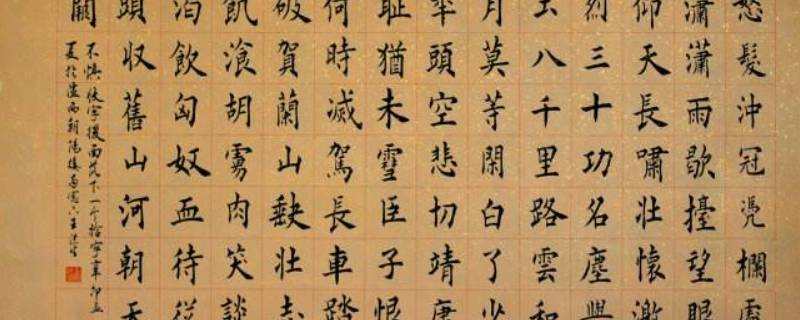 怒髮沖冠凴欄處
瀟瀟雨歇擡望眼
仰天長嘯壯懷激
烈三十功名塵與
土八千里路雲和
月莫等閑白了少
年頭空悲切靖康
恥猶未雪臣子恨
何時滅駕長車踏
破賀蘭山缺壯志
飢湌胡虜肉笑談
渴飲匈奴血待從
頭收舊山河朝天
闕
不慎後面落下一个字辛卯五
夏於溫西朝陽樓